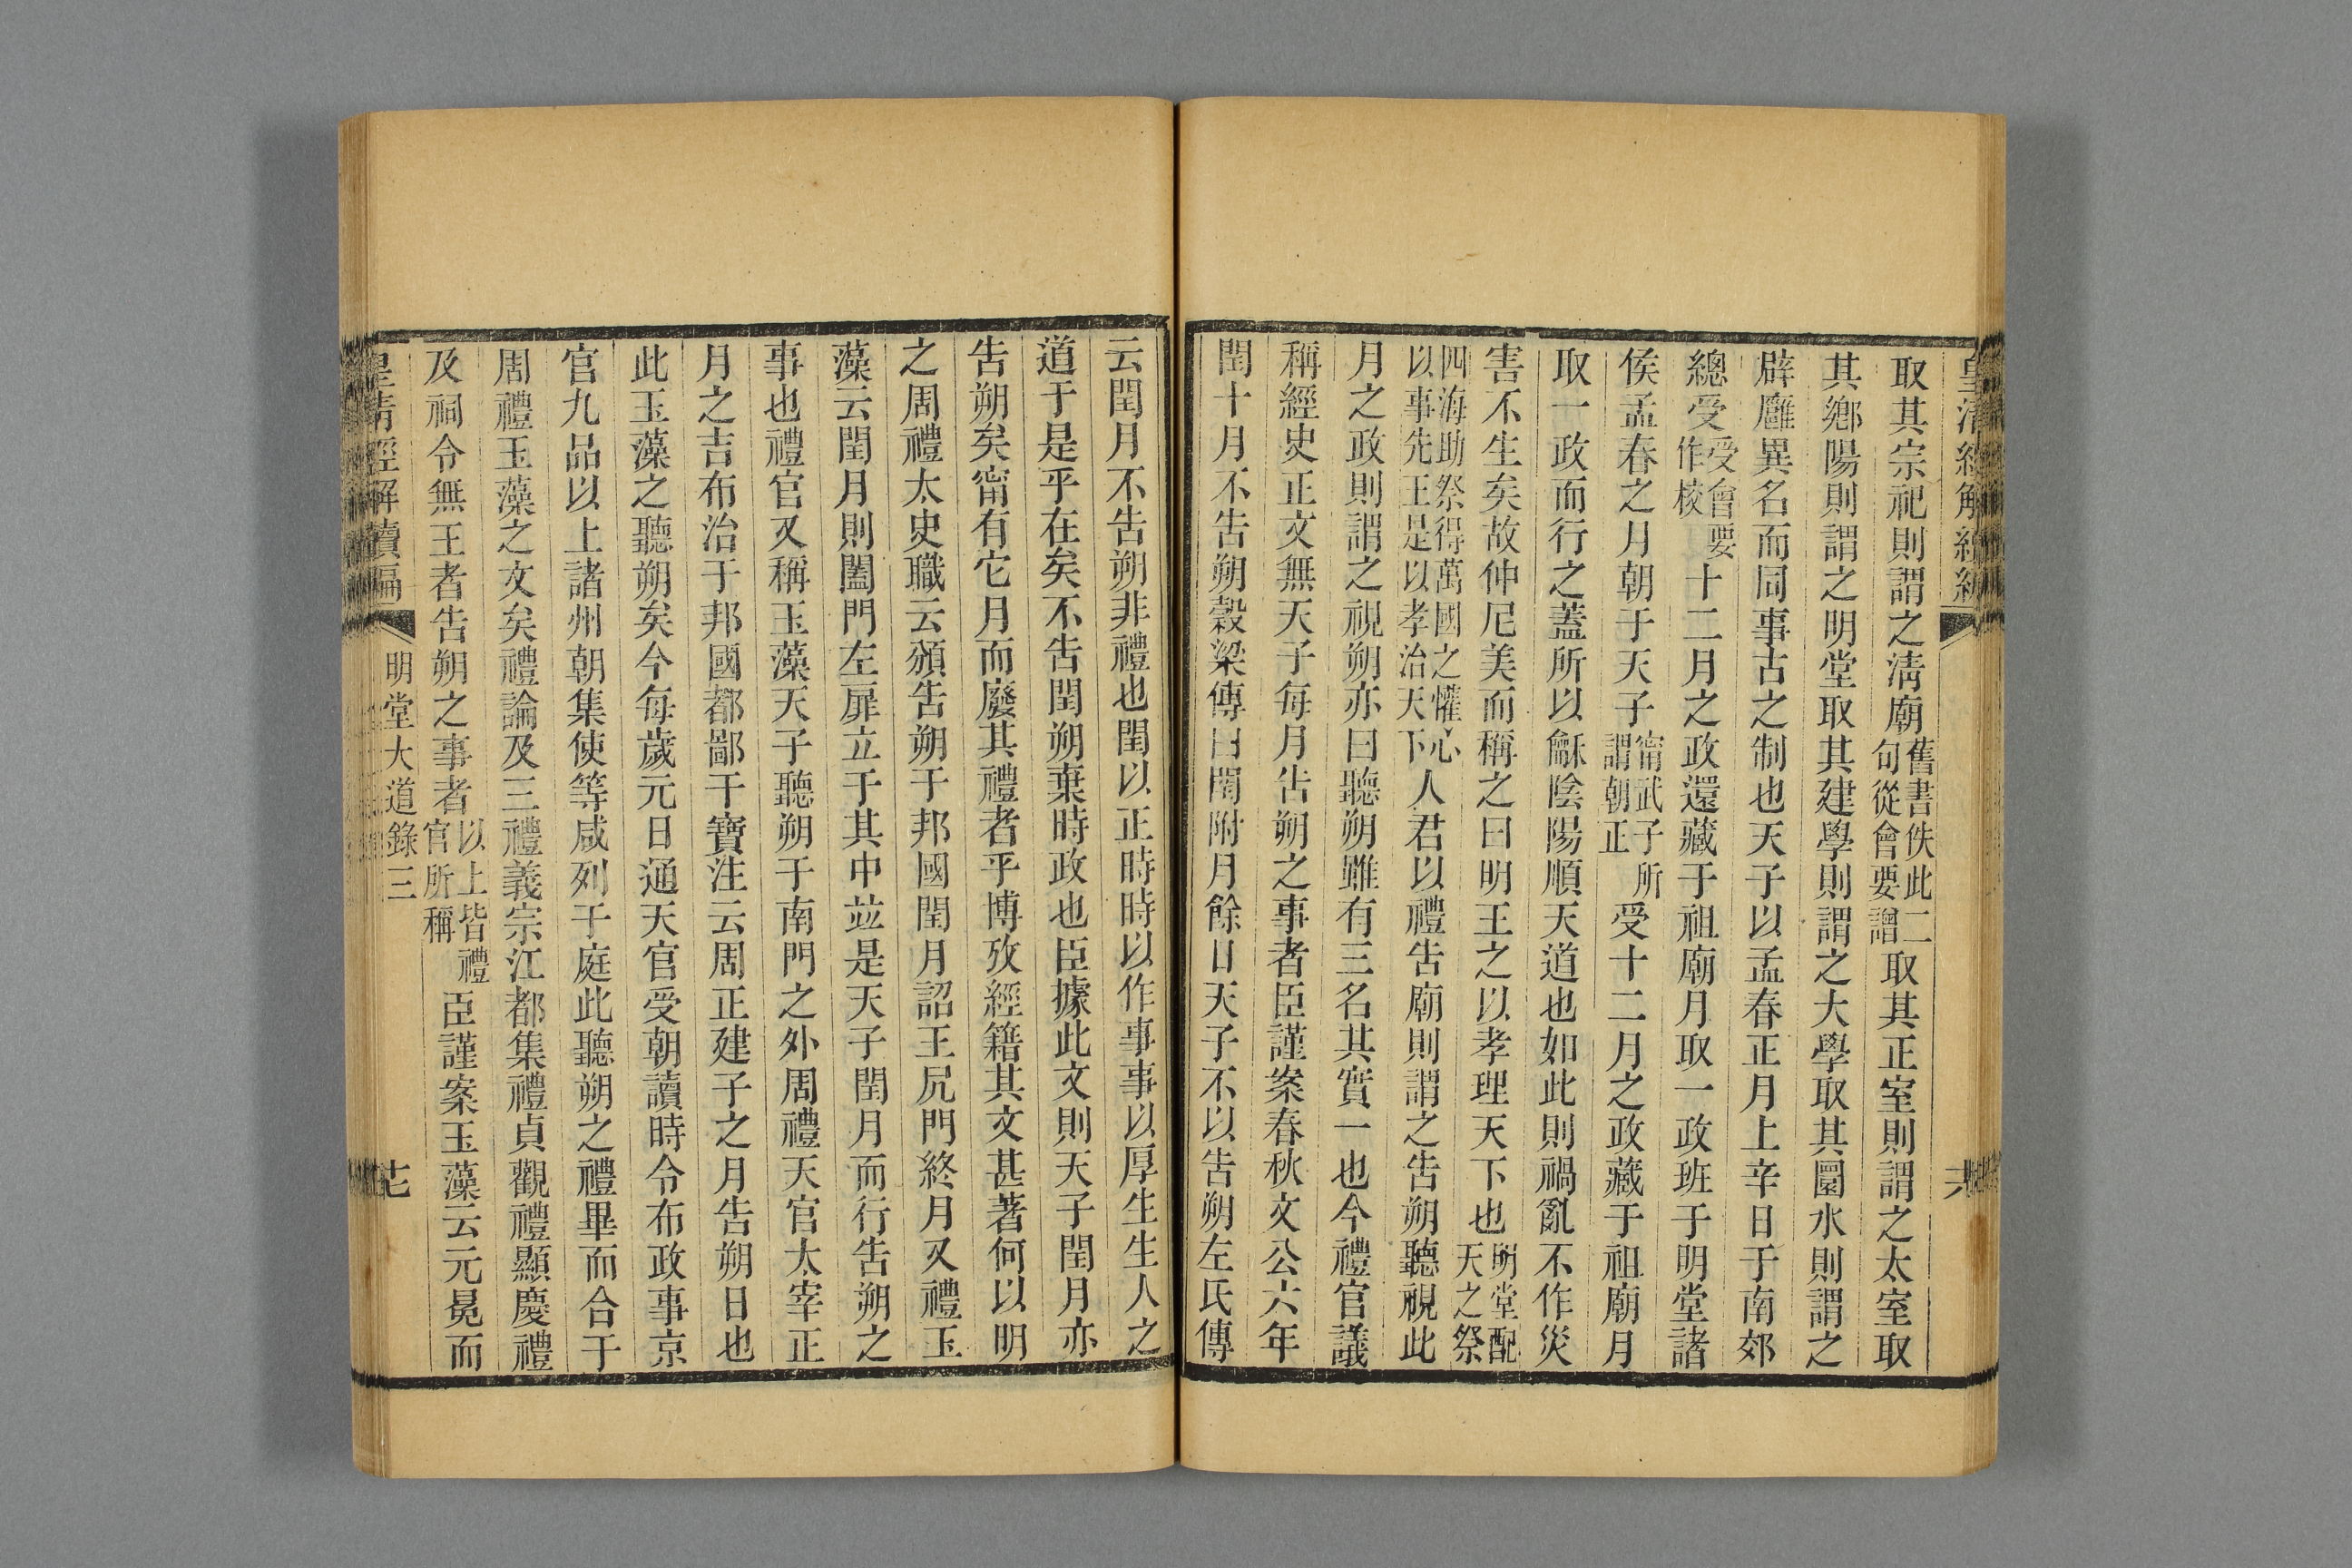 皇清經解續編
取其宗祀則謂之淸廟舊書佚此二句從會要譄取其正室則謂之太室取
其鄉陽則謂之明堂取其建學則謂之大學取其圜水則謂之
辟廱異名而同事古之制也天子以孟春正月上辛日于南郊
總受受會要作校十二月之政還藏于祖廟月取一政班于明堂諸
侯孟春之月朝于天子甯武子所謂朝正受十二月之政藏于祖廟月
取一政而行之蓋所以龢陰陽順天道也如此則禍亂不作災
害不生矣故仲尼美而稱之曰明王之以孝理天下也明堂配天之祭
四海助祭得萬國之懽心以事先王是以孝治天下人君以禮告廟則謂之告朔聽視此
月之政則謂之視朔亦曰聽朔雖有三名其實一也今禮官議
稱經史正文無天子每月告朔之事者臣謹案春秋文公六年
閏十月不告朔穀梁傳曰閏附月餘日天子不以告朔左氏傳
云閏月不告朔非禮也閏以正時時以作事事以厚生生人之
道于是乎在矣不告閏朔棄時政也臣據此文則天子閏月亦
告朔矣甯有它月而廢其禮者乎博攷經籍其文甚著何以明
之周禮太史職云頒告朔于邦國閏月詔王凥門終月又禮玉
藻云閏月則闔門左扉立于其中竝是天子閏月而行告朔之
事也禮官又稱玉藻天子聽朔于南門之外周禮天官太宰正
月之吉布治于邦國都鄙干寶注云周正建子之月告朔日也
此玉藻之聽朔矣今每歲元日通天官受朝讀時令布政事京
官九品以上諸州朝集使等咸列于庭此聽朔之禮畢而合于
周禮玉藻之文矣禮論及三禮義宗江都集禮貞觀禮顯慶禮
及祠令無王者告朔之事者以上皆禮官所稱臣謹案玉藻云元冕而
皇清經解續編 明堂大道錄三 十七